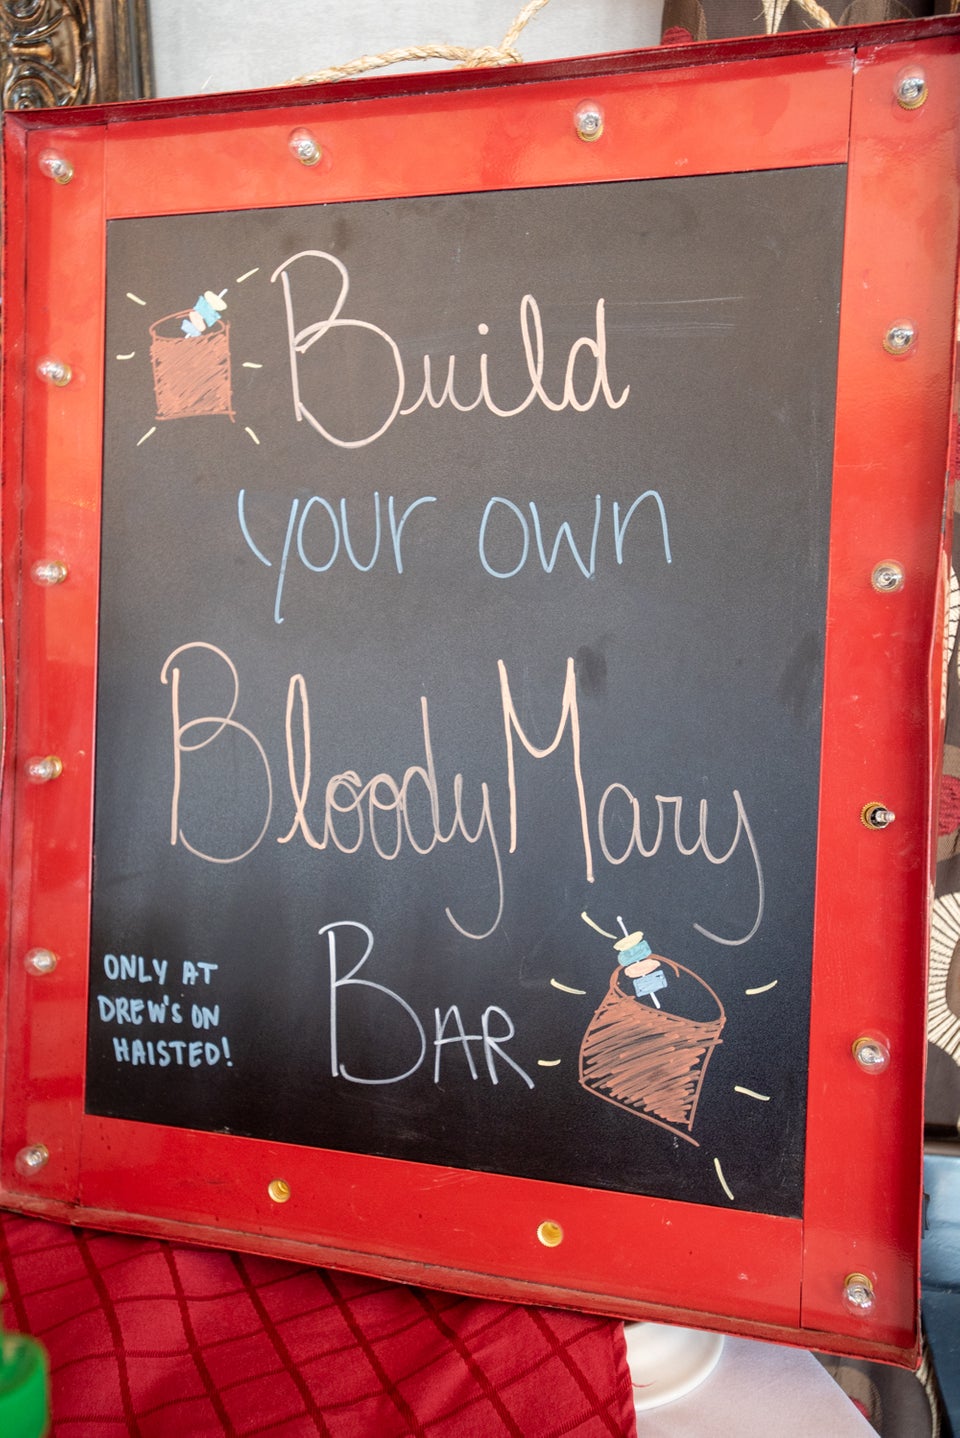 Build
your own
Bloody Mary
BAR
ONLY AT
DREW'S ON
HAISTED!